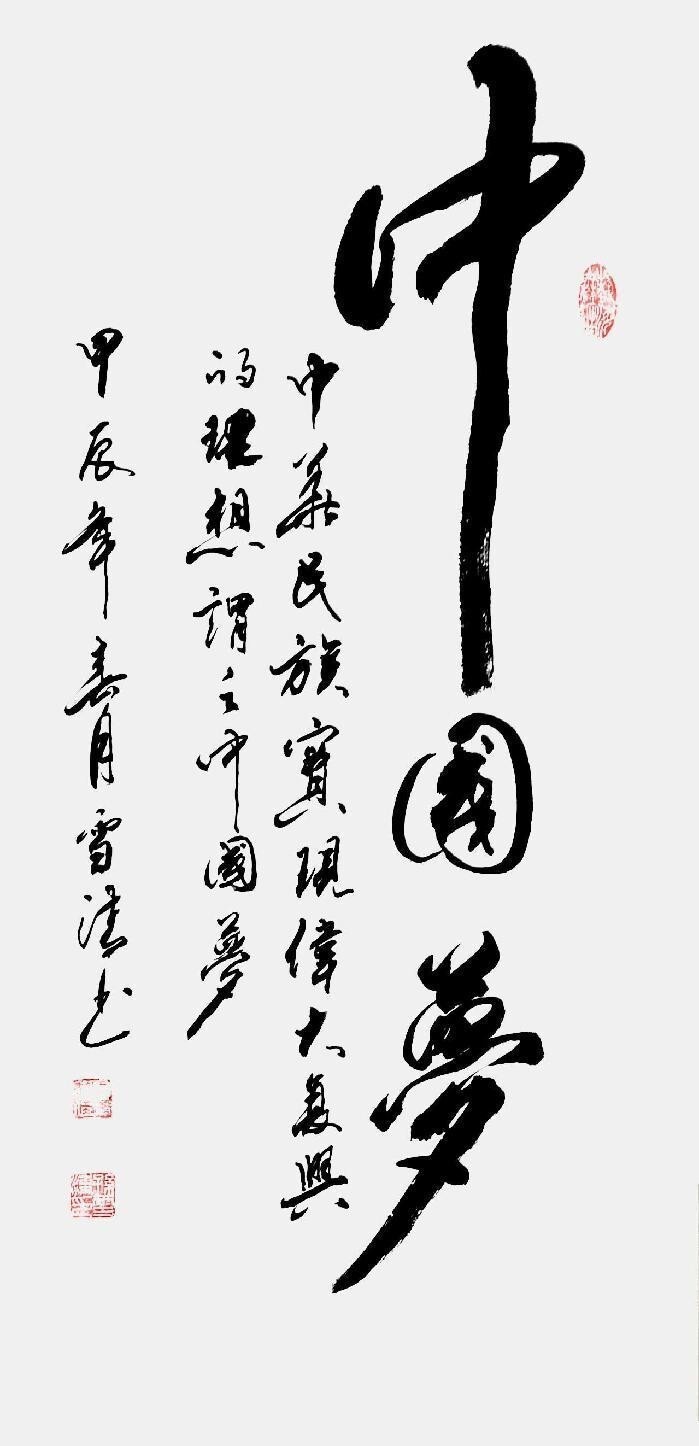 中國夢
中華民族實現偉大復興
的理想謂之中國夢
甲辰年春月雪清书